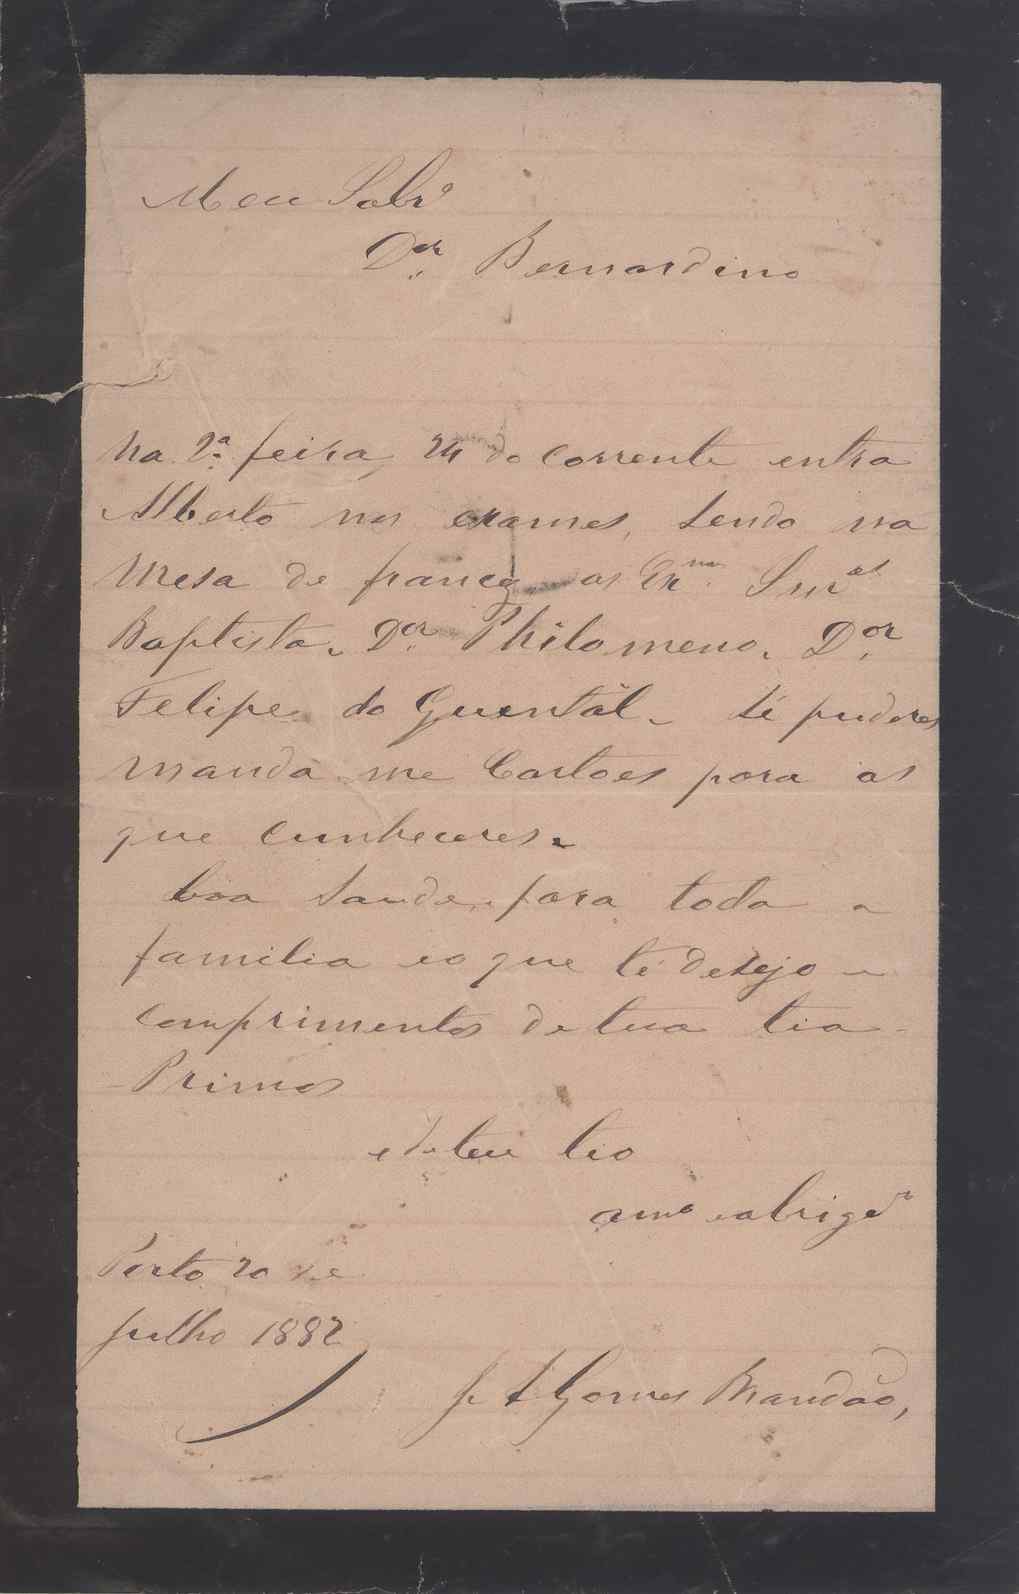 Meu Sobr.º
Dor. Bernardino
Na 2.ª feira, 24 do corrente entra
Alberto nos exames, sendo na
Mesa de francez os Exmos. Snres
Baptista, Dor. Philomeno, Dor.
Felipe do Quental. Sé puderes
manda me Cartões para os
que cunheceres.
boa saude para toda a
familia eo que té desejo e
comprimentos de tua tia
Primos
e de teu tio
amo e obrigdo
Porto 20 de
Julho 1882
J A Gomes Brandão,